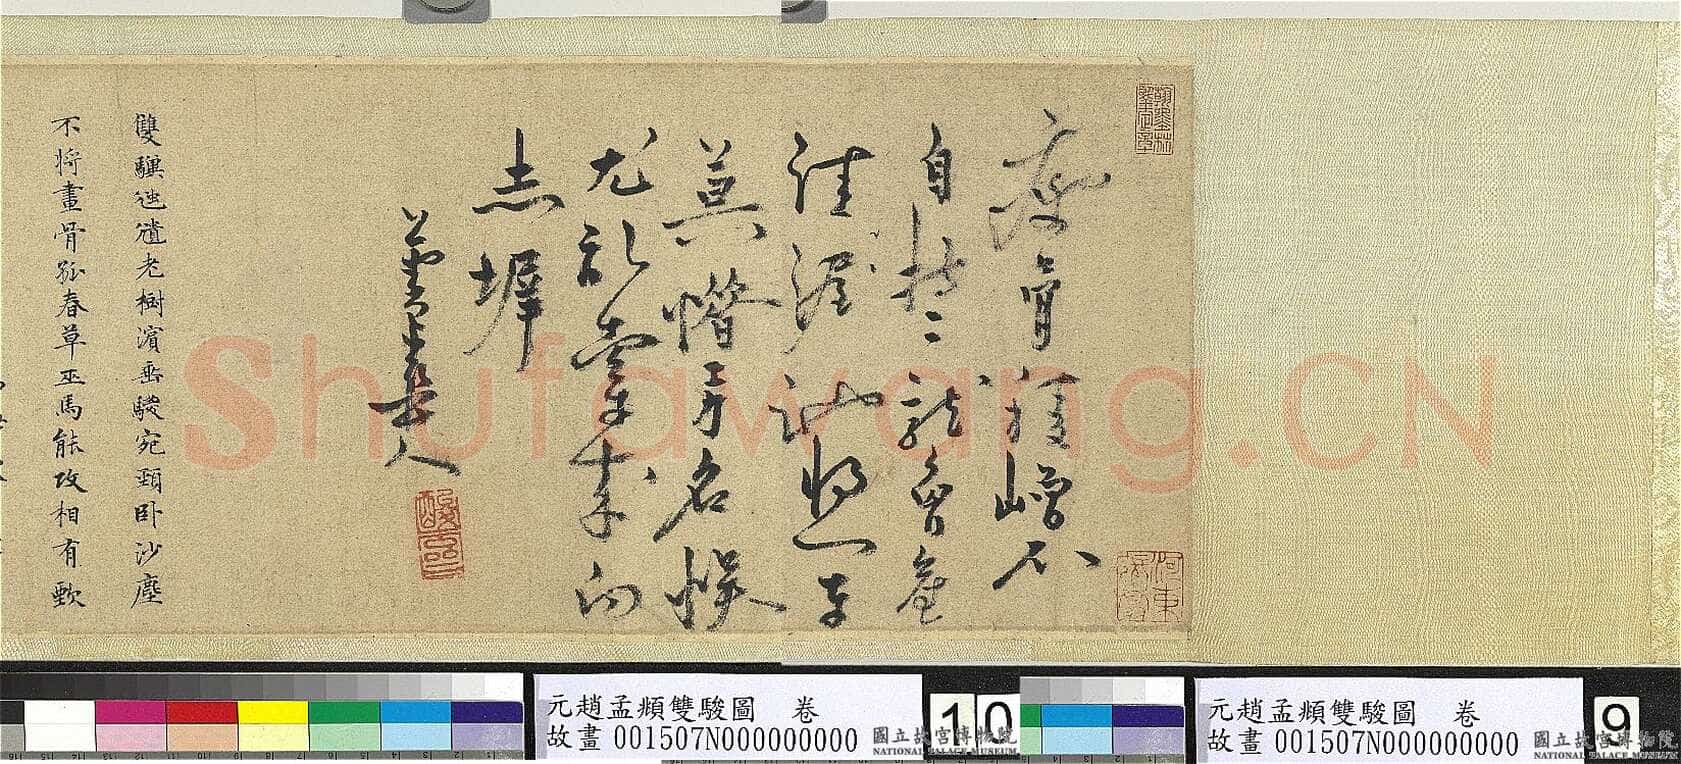 瘦骨稜嶒不
自持二龍曾產
洼渥池
莫惜名誤
尤記來向
赤墀
人
雙驥老樹濱垂騣宛頸臥沙塵
不將畫骨孤春草巫馬能攻相有歅
河東
Shufawang.CN
元趙孟頫雙駿圖 卷
故畫 001507N000000000
國立故宮博物院
NATIONAL PALACE MUSEUM
10
元趙孟頫雙駿圖 卷
故畫 001507N000000000
國立故宮博物院
NATIONAL PALACE MUSEUM
9